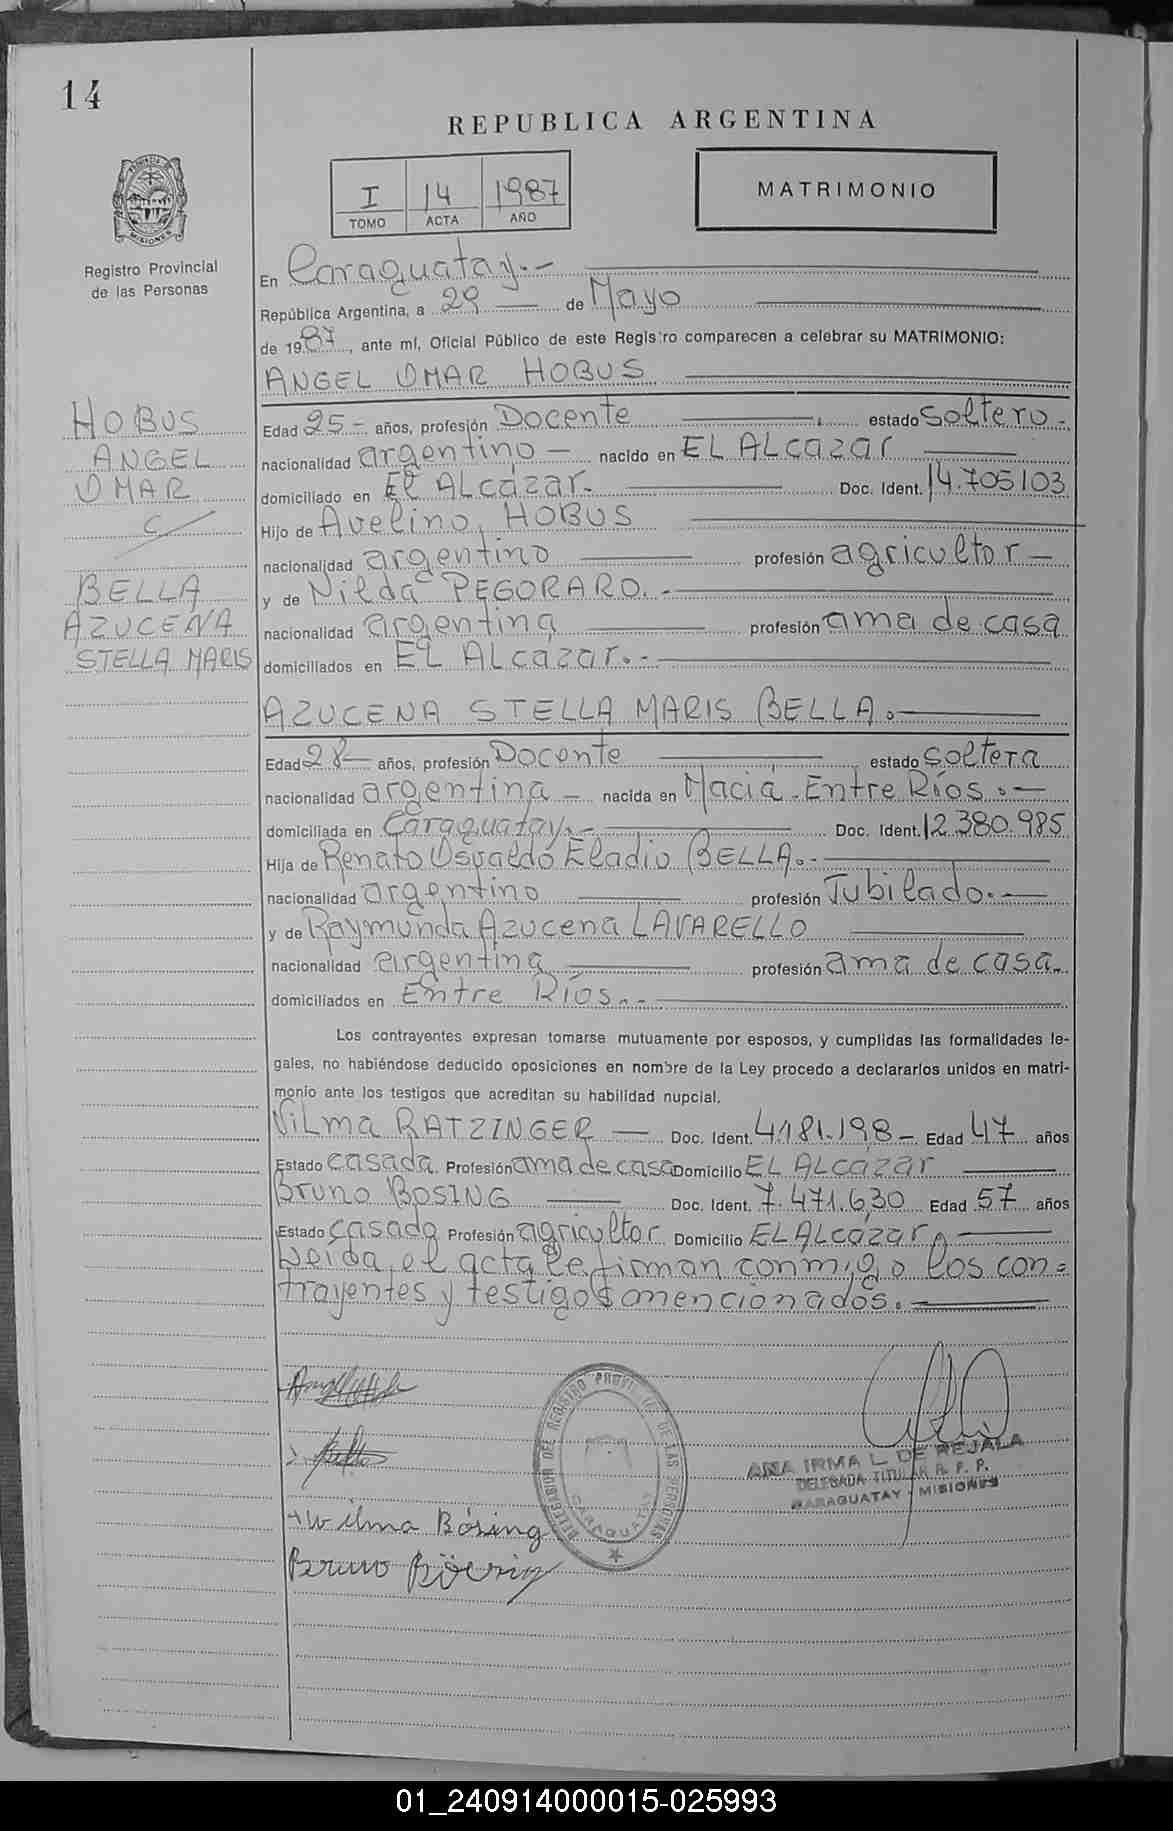 14
REPUBLICA ARGENTINA
PROVINCIA DE
MISIONES
Registro Provincial
de las Personas
I 14 1987
TOMO ACTA AÑO
MATRIMONIO
En Caraguatay.-
República Argentina, a 29 de Mayo
de 1987, ante mí, Oficial Público de este Registro comparecen a celebrar su MATRIMONIO:
ANGEL OMAR HOBUS
HOBUS
ANGEL
OMAR
c/
BELLA
AZUCENA
STELLA MARIS
Edad 25- años, profesión Docente estado soltero.
nacionalidad argentino - nacido en EL ALcazar
domiciliado en El ALcázar. Doc. Ident. 14.705103
Hijo de Avelino HOBUS
nacionalidad argentino profesión agricultor-
y de Nilda PEGORARO.-
nacionalidad argentina profesión ama de casa
domiciliados en EL ALcazar.-
AZUCENA STELLA MARIS BELLA.
Edad 28- años, profesión Docente estado soltera
nacionalidad argentina - nacida en Maciá-Entre Ríos.-
domiciliada en Caraguatay.- Doc. Ident. 12.380.985
Hija de Renato Osvaldo Eladio BELLA.-
nacionalidad argentino profesión Jubilado.-
y de Raymunda Azucena LAVARELLO
nacionalidad argentina profesión ama de casa.
domiciliados en Entre Ríos.-
Los contrayentes expresan tomarse mutuamente por esposos, y cumplidas las formalidades le-
gales, no habiéndose deducido oposiciones en nombre de la Ley procedo a declararlos unidos en matri-
monio ante los testigos que acreditan su habilidad nupcial.
Vilma RATZINGER - Doc. Ident. 4.181.198- Edad 47 años
Estado casada Profesión ama de casa Domicilio EL ALcázar
Bruno BOSING Doc. Ident. 7.471.630 Edad 57 años
Estado casado Profesión agricultor Domicilio EL ALcázar.
Leida el acta le firman conmigo los con=
trayentes y testigos mencionados.-
DELEGACION DEL REGISTRO PROVINCIAL DE LAS PERSONAS
CARAGUATAY
ANA IRMA L. DE REJALA
DELEGADA TITULAR R. P. P.
CARAGUATAY - MISIONES
Wilma Bösing
Bruno Bösing
01_240914000015-025993